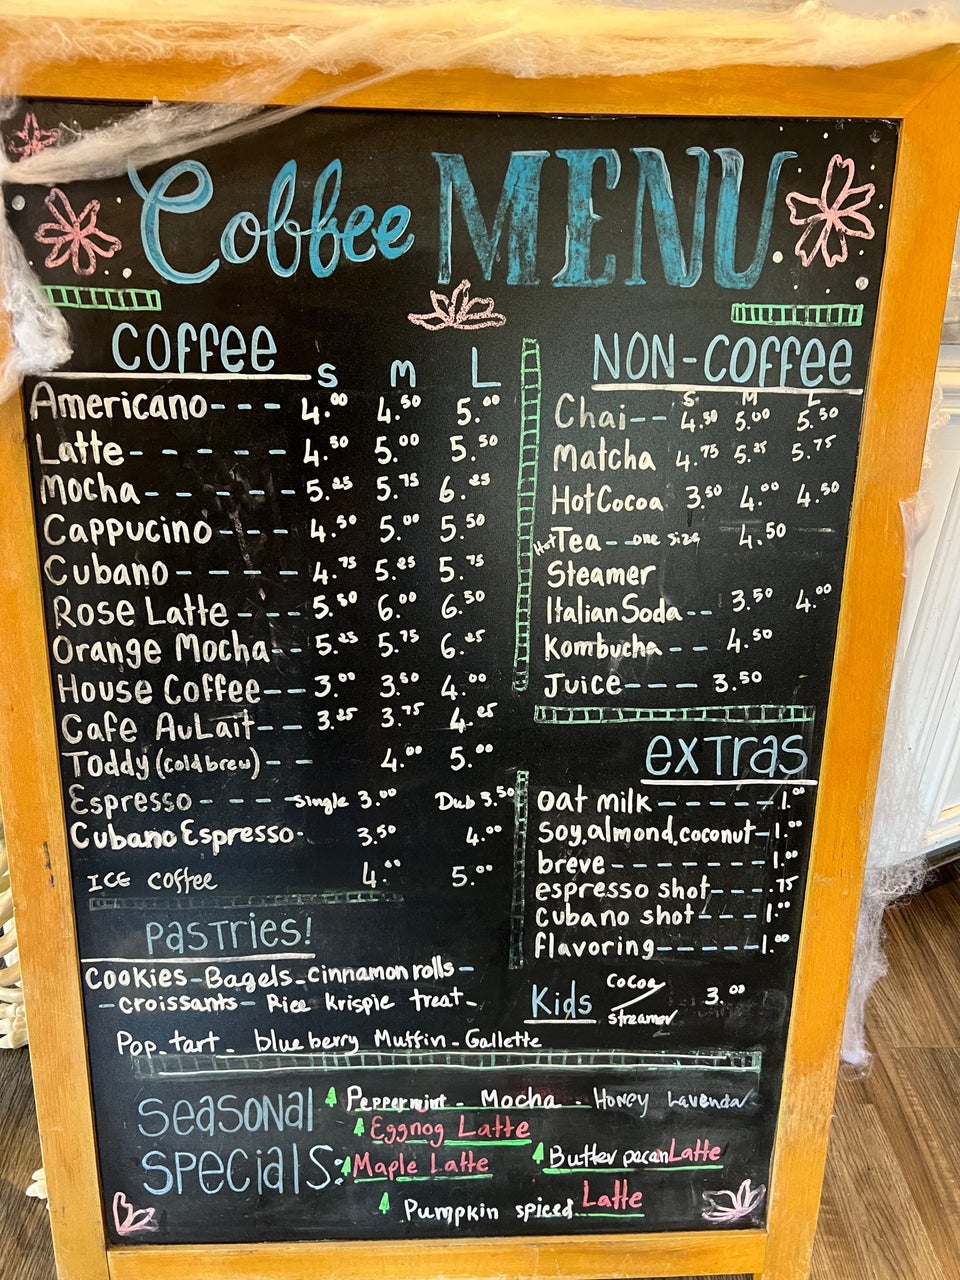 Coffee MENU
COFFEE
S M L
Americano--- 4.00 4.50 5.00
Latte----- 4.50 5.00 5.50
Mocha----- 5.25 5.75 6.25
Cappucino--- 4.50 5.00 5.50
Cubano----- 4.75 5.25 5.75
Rose Latte--- 5.50 6.00 6.50
Orange Mocha-- 5.25 5.75 6.25
House Coffee-- 3.00 3.50 4.00
Cafe AuLait-- 3.25 3.75 4.25
Toddy (cold brew)-- 4.00 5.00
Espresso---- single 3.00 Dub 3.50
Cubano Espresso- 3.50 4.00
ICE coffee 4.00 5.00
NON-COFFEE
S M L
Chai-- 4.50 5.00 5.50
Matcha 4.75 5.25 5.75
Hot Cocoa 3.50 4.00 4.50
Hot Tea--one size 4.50
Steamer
Italian Soda-- 3.50 4.00
Kombucha-- 4.50
Juice---- 3.50
exTras
oat milk-----1.00
soy,almond,coconut-1.00
breve-------1.00
espresso shot---.75
cubano shot---1.00
flavoring----1.00
Kids cocoa 3.00
streamer
PasTries!
Cookies-Bagels-cinnamon rolls-
-croissants- Rice krispie treat-
Pop-tart- blueberry Muffin-Gallette
Seasonal Specials:
Peppermint- Mocha- Honey Lavendar
Eggnog Latte
Maple Latte Butter pecan Latte
Pumpkin spiced Latte